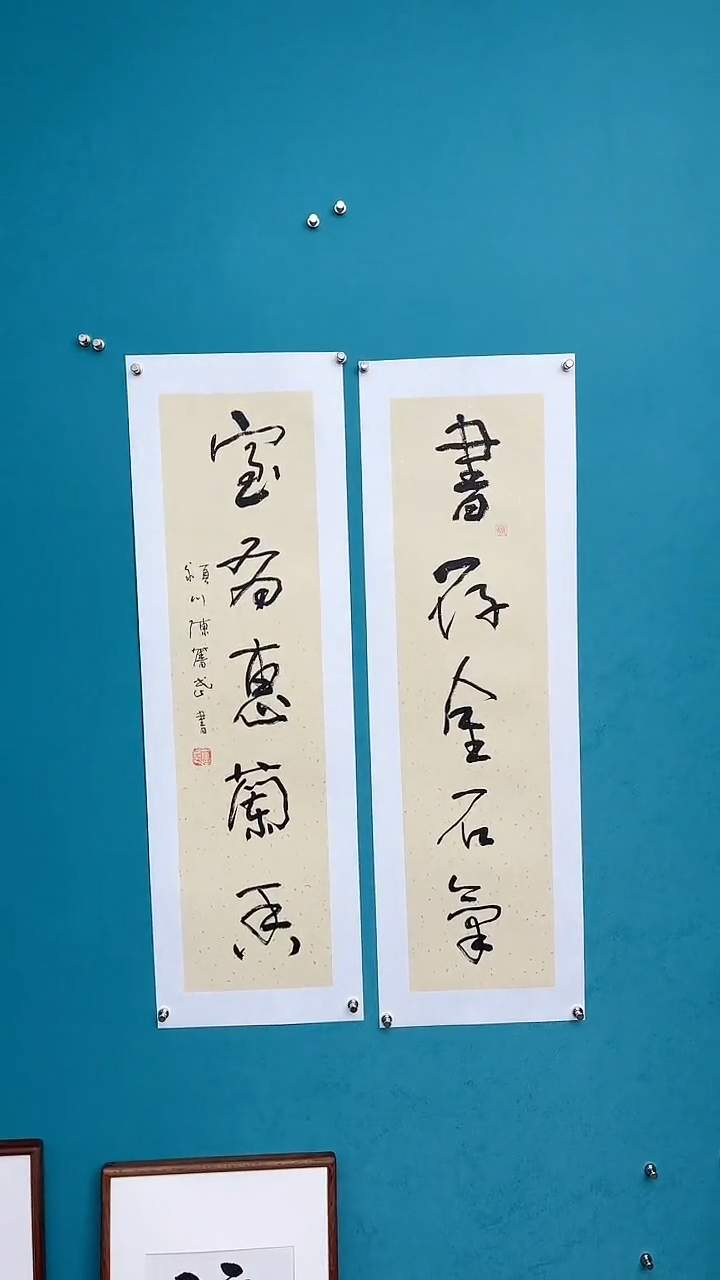 書存金石氣
室有蕙蘭香
潁川陳
書